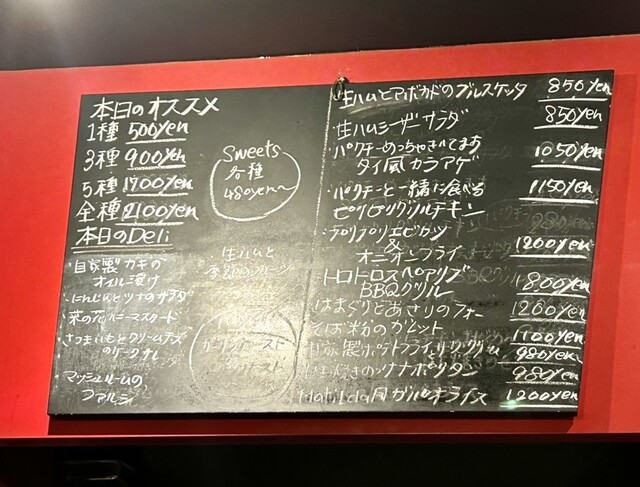 本日のオススメ
1種 500yen
3種 900yen
5種 1700yen
全種 2100yen
本日のDeli
・自家製カキの
オイル漬け
・にんじんとツナのサラダ
・菜の花ハニーマスタード
さつまいもとクリームチーズ
のケークサレ
マッシュルームの
ファルシ
Sweets
各種
480yen〜
生ハムと
季節のフルーツ
生ハムとアボカドのブルスケッタ 850yen
生ハムシーザーサラダ 850yen
パクチーめっちゃきてます
タイ風カラアゲ 1050yen
・パクチーと一緒に食べる 1150yen
ピリピリグリルチキン
プリプリエビカツ
&
オニオンフライ 1200yen
トロトロスペアリブ
BBQグリル 1800yen
はまぐりとあさりのフォー 1200yen
そば粉のガレット 1100yen
自家製ポテトフライ 980yen
鉄板焼きのナポリタン 980yen
ガパオライス 1200yen